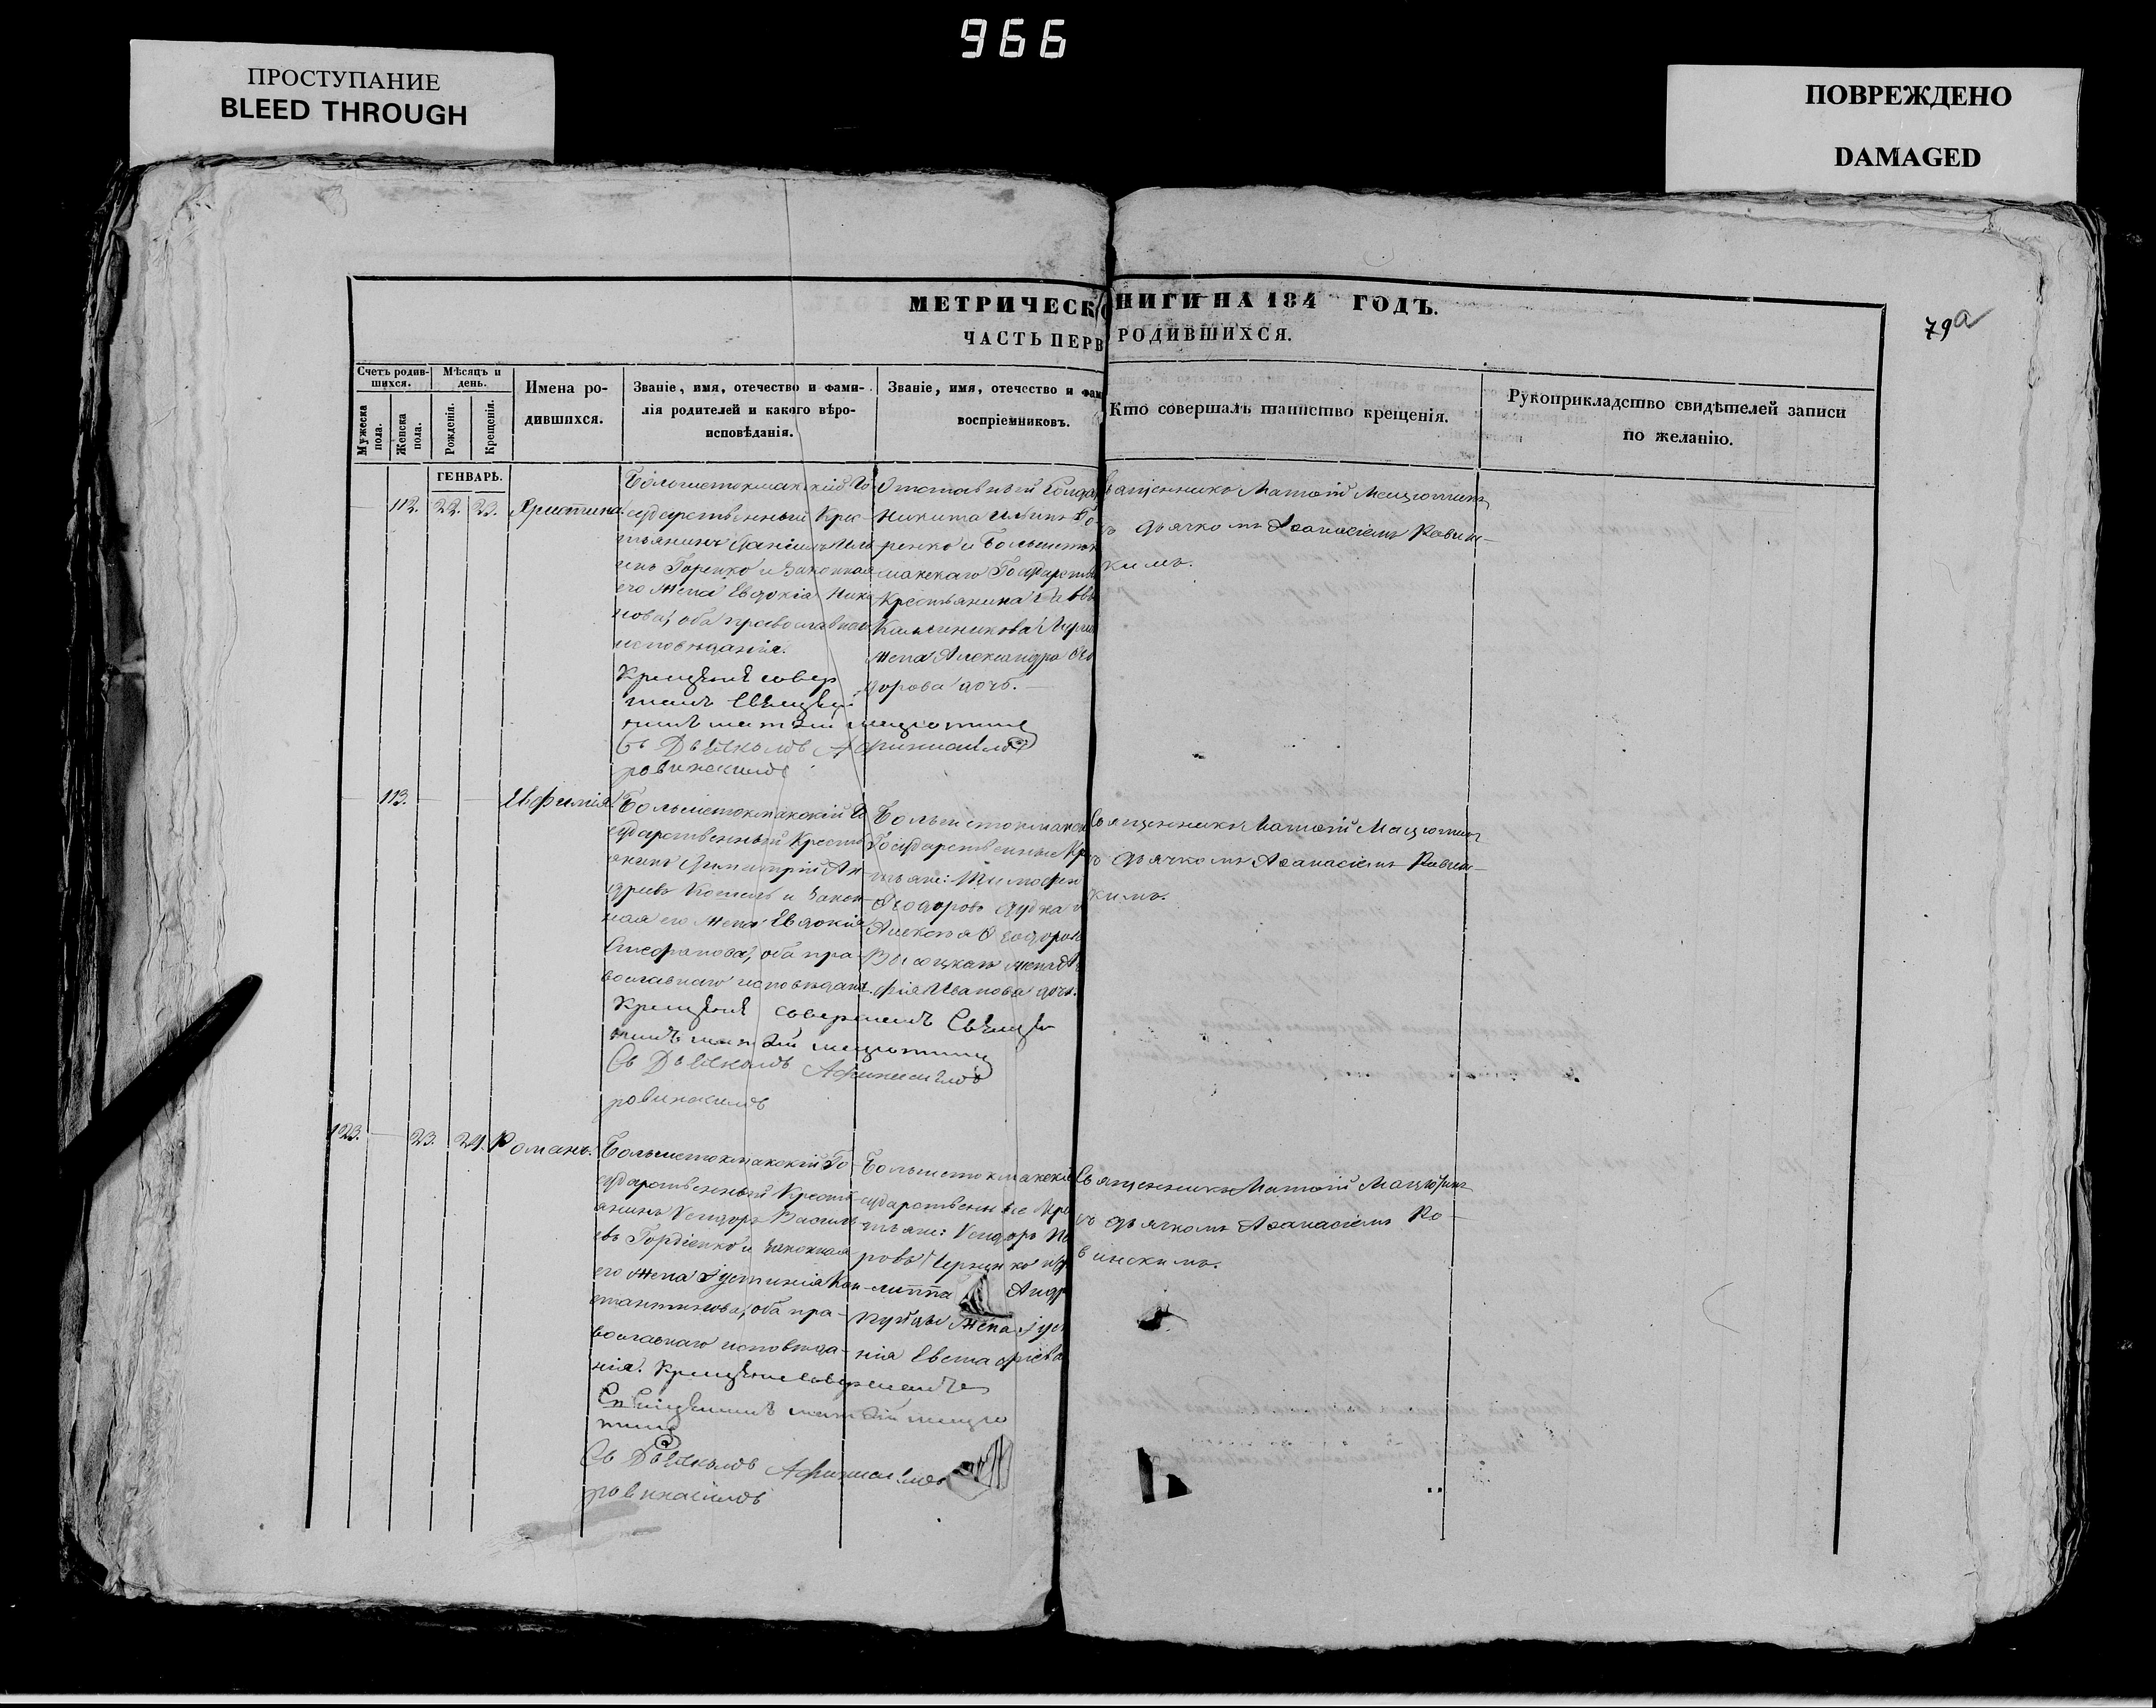 966
ПРОСТУПАНИЕ
BLEED THROUGH
ПОВРЕЖДЕНО
DAMAGED
79а
МЕТРИЧЕСК НИГИ НА 184 ГОДЪ.
ЧАСТЬ ПЕРВ РОДИВШИХСЯ.
Счетъ родив-
шихся.
Мѣсяцъ и
день.
Мужеска
пола.
Женска
пола.
Рожденія.
Крещенія.
Имена ро-
дившихся.
Званіе, имя, отечество и фами-
лія родителей и какого вѣро-
исповѣданія.
Званіе, имя, отечество и фам
воспріемниковъ.
Кто совершалъ таинство крещенія.
Рукоприкладство свидѣтелей записи
по желанію.
ГЕНВАРЬ.
112. 22. 22. Христина.
Большетокмакскій Го
сударственный Крес-
тьянинъ Даніилъ
инъ Горенко и Законная
его Жена Евдокія
нова, оба православнаго
исповѣданія.
Крещеніе совер
шалъ Священ
никъ Матѳій Мацютинъ
Съ Дьячкомъ Афанасіемъ
ровинскимъ
Отставный Солда
Никита Ильинъ Го-
ренко и Большеток
макскаго Государств
Крестьянина Савв
Калиникова
Жена Александра Ѳео
дорова дочь.
вященникъ Матѳій Мацютинъ
ъ дьячкомъ Аѳанасіемъ Ровин-
кимъ.
113. Евфимія.
Большетокмакскій Го
сударственный Кресть
янинъ Димитрій Ан-
дреевъ и Закон-
ная его Жена Евдокія
Стефанова, оба пра-
вославнаго исповѣданія.
Крещеніе совершалъ Священ
никъ Матѳій Мацютинъ
Съ Дьячкомъ Афанасіемъ
ровинскимъ
Большетокмакск
Государственные Кр
тьяне: Тимофей
Ѳеодоровъ Дудка и
Алексѣя Ѳеодоров
Высоцкаго жена
фія Иванова дочь.
Священникъ Матѳій Мацютинъ
ъ дьячкомъ Аѳанасіемъ Ровин-
кимъ.
123. 23. 24. Романъ.
Большетокмакскій Го-
сударственный Кресть-
янинъ Василь-
евъ Гордіенко и Законная
его Жена Іустинія Кон-
стантинова, оба пра-
вославнаго исповѣда-
нія. Крещеніе совершалъ
Священникъ Матѳій Мацю
тинъ
Съ Дьячкомъ Афанасіемъ
ровинскимъ
Большетокмакскіе
сударственные Кре
тьяне:
ровъ
липпа Андр
Жена Іуст
нія Евстафіева
Священникъ Матѳій Мацютинъ
съ дьячкомъ Аѳанасіемъ Ро-
винскимъ.